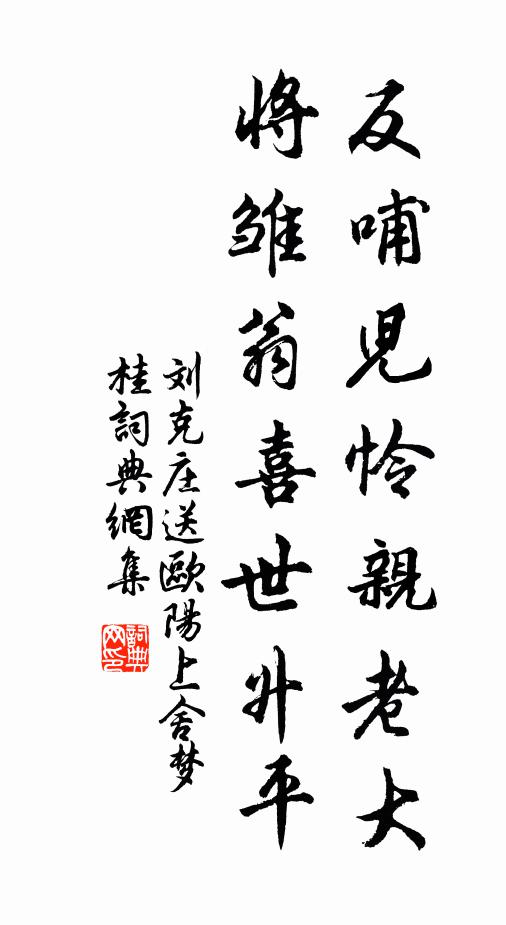 反哺児怜親老大
将雛翁喜世升平
刘克庄送歐陽上舍梦
桂詞典網集
詞典網印